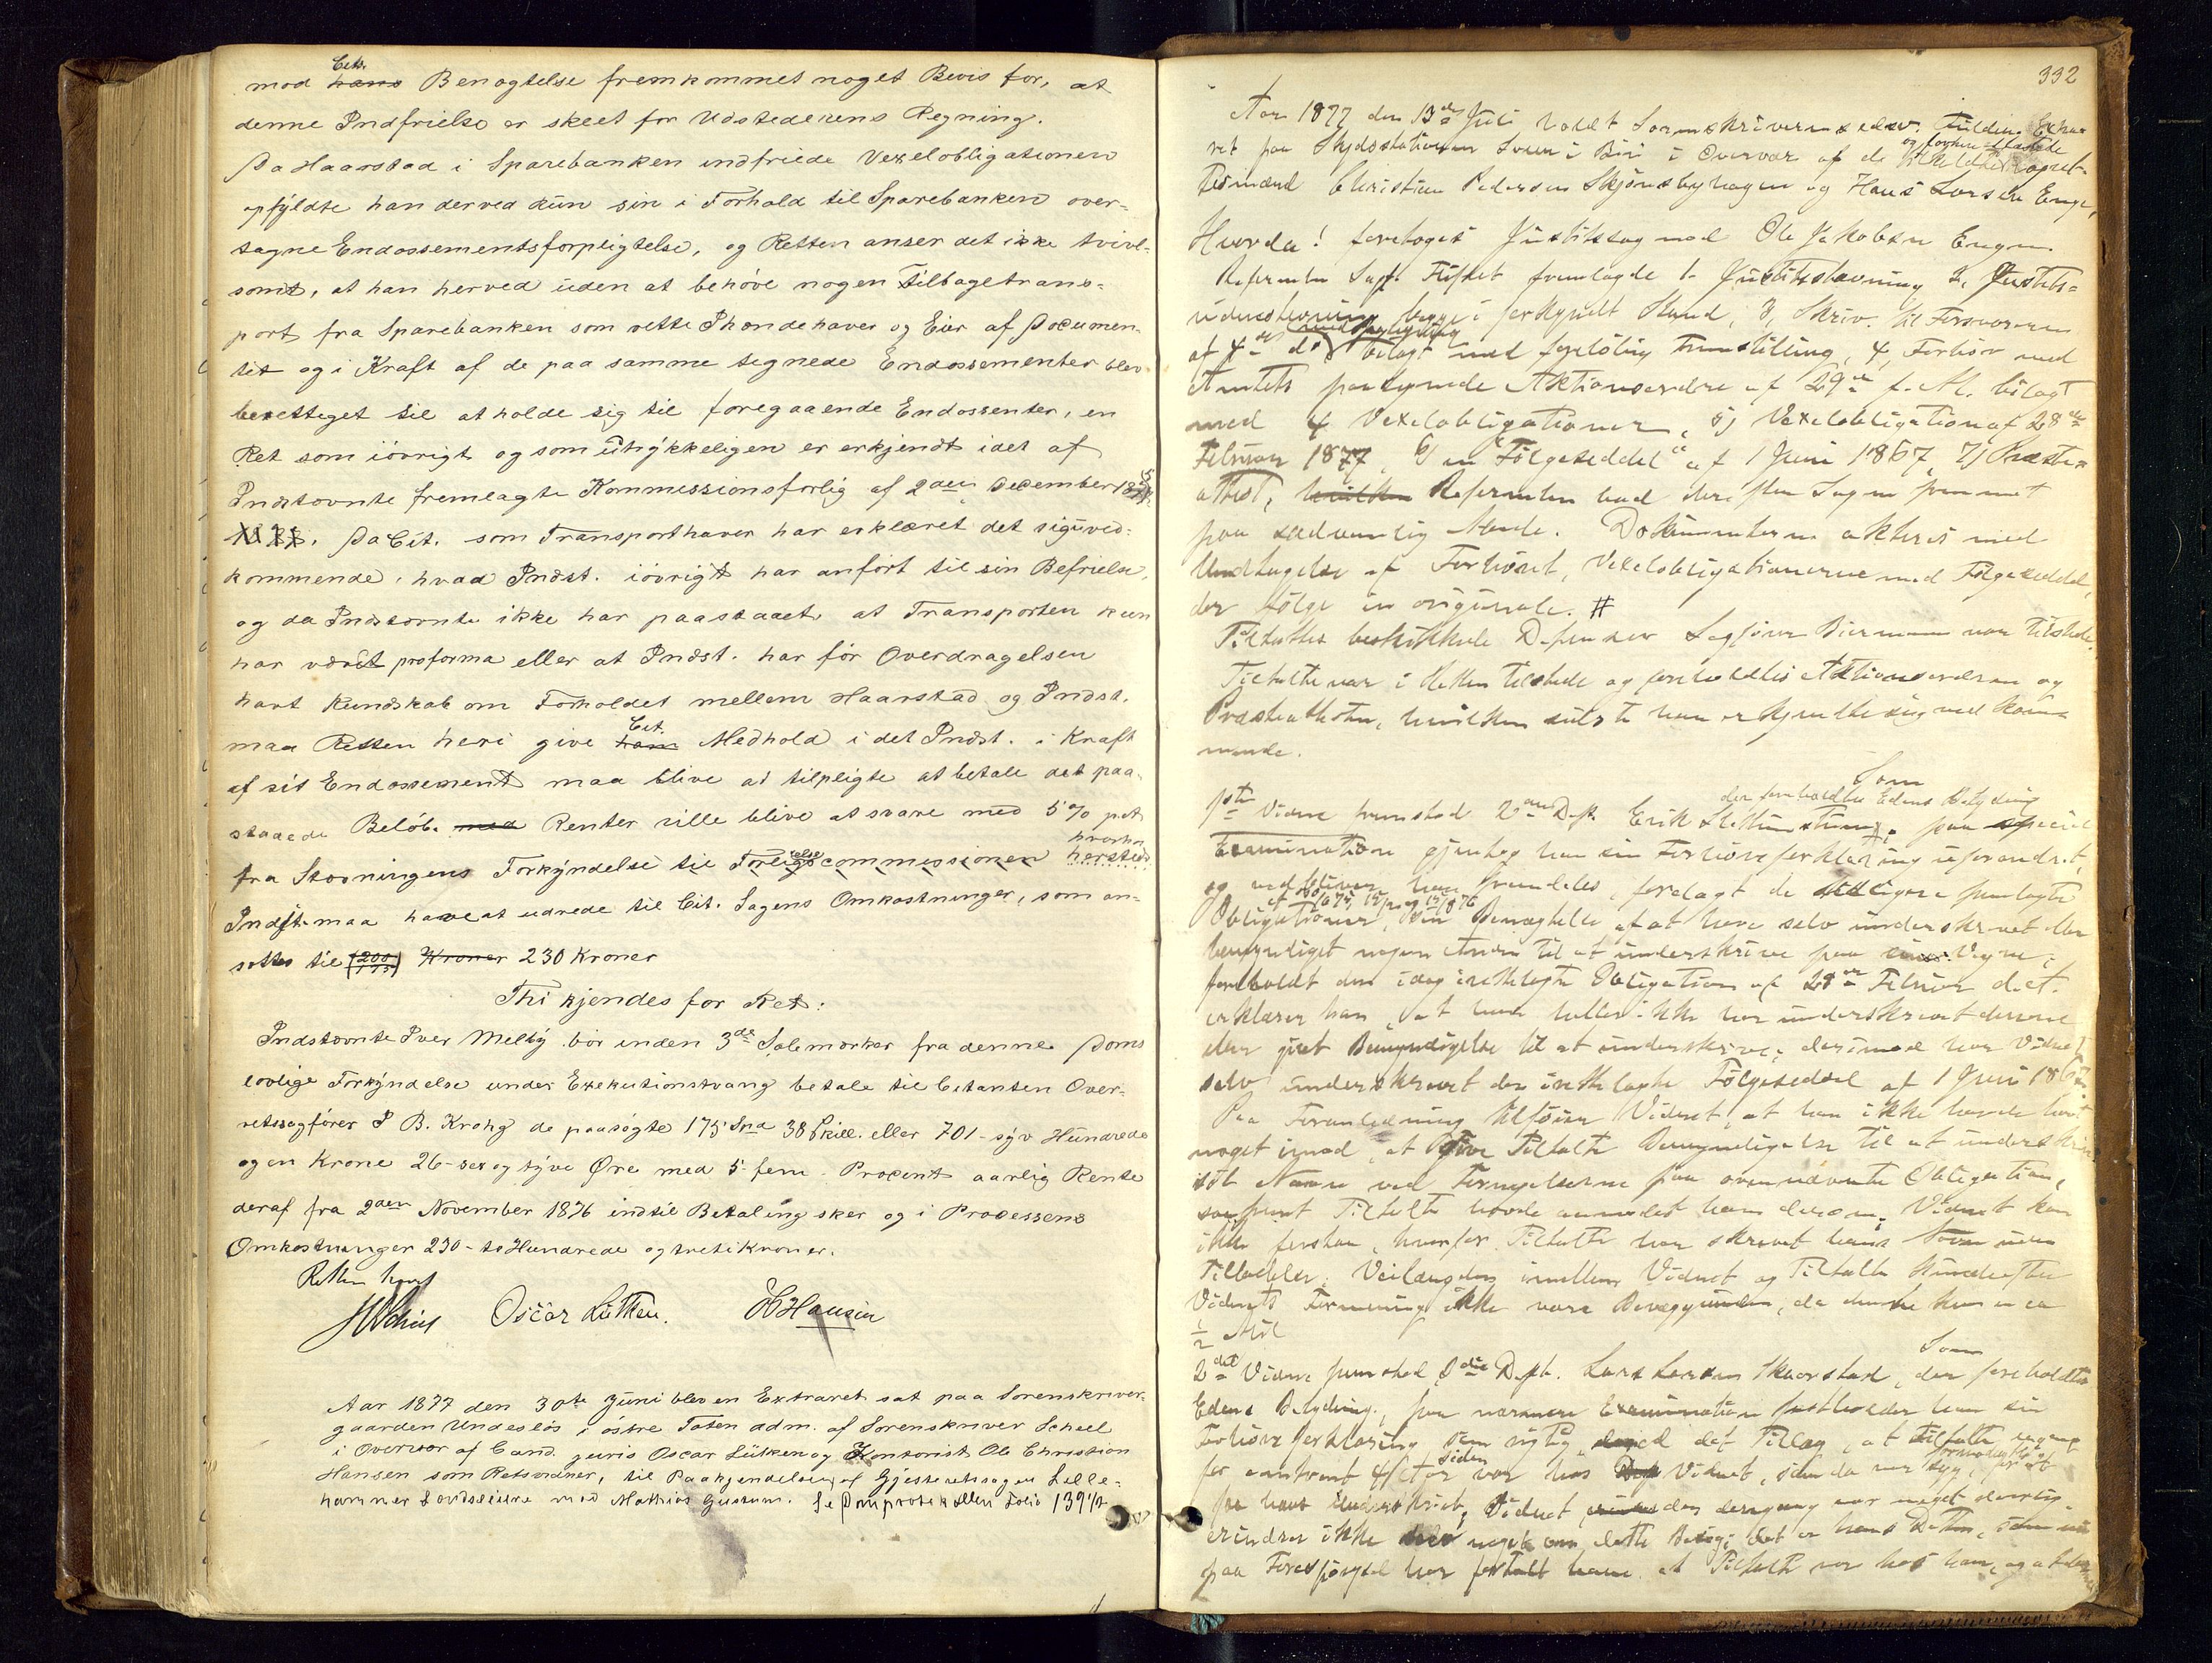 Cit.
mod hans Benægtelse fremkommet noget Bevis for, at
denne Indfrielse er skeet for Udstederens Regning.
Da Haarstad i Sparebanken indfriede Vexelobligationen
opfyldte han derved kun sin i Forhold til Sparebanken over-
tagne Endossementsforpligtelse, og Retten anser det ikke tvivl-
somt, at han herved uden at behøve nogen Tilbagetrans-
port fra Sparebanken som rette Ihændehaver og Eier af Documen-
tet og i Kraft af de paa samme tegnede Endossementer blev
berettiget til at holde sig til foregaaende Endossenter, en
Ret som iøvrigt og som udtrykkeligen er erkjendt idet af
Indstevnte fremlagte Kommissionsforlig af 2den December
Da Cit. som Transporthaver har erklæret det siguved-
kommende, hvad Indst. iøvrigt har anført til sin Befrielse,
og da Indstevnte ikke har paastaaet at Transporten kun
har været proforma eller at Indst. har før Overdragelsen
havt Kundskab om Forholdet mellem Haarstad og Indst.
Cit.
maa Retten heri give ham Medhold i det Indst. i Kraft
af sit Endossement maa blive at tilpligte at betale det paa-
staaede Beløb. med Renter ville blive at svare med 5% pct
fra Stevningens Forkyndelse til Forligscommissionen
Indst. maa have at udrede til Cit. Sagens Omkostninger, som an-
settes til (200/175) Kroner 230 Kroner
Thi kjendes for Ret:
Indstevnte Iver Melby bør inden 3de Solemerker fra denne Doms
lovlige Forkyndelse under Exekutionstvang betale til Citanten Over-
retssagfører P B. Krohg de paasøgte 175 Spd 38 Skill. eller 701 - syv Hundrede
og en Krone 26 - sex og tyve Øre med 5 - fem - Procent aarlig Rente
deraf fra 2den November 1876 indtil Betaling sker og i Processens
Omkostninger 230 - to Hundrede og treti Kroner.
Retten hævet
Oscar Lütken. Hansen
Aar 1877 den 30te Juni blev en Extraret sat paa Sorenskriver-
gaarden Undesløs i østre Toten adm. af Sorenskriver Scheel
i Overvær af Cand. juris Oscar Lütken og Kontorist Ole Christian
Hansen som Retsvidner, til Paakjendelse af Gjesteretssagen Lille-
hammer mod Mathias Gustum. Se Domprotokollen Folio 139
332
Aar 1877 den 13de Juli holdt Sorenskriveren Extra-
ret paa Skydsstationen Sveen i Biri i Overvær af de
Christian Pedersen Skjønsbyhagen og Hans Larsen Enge,
Hvorda! foretoges Justitssag mod Ole Jakobsen Engen
Referenten Sagf. fremlagde 1. Justitsstevning 2, Justits-
begge i forkyndt Stand, 3, Skriv. til Forsvareren
af 4de ds bilagt med foreløbig Fremstilling, 4, Forhør med
Amtets paategnede Aktionsordre af 29de f. M. bilagt
med 4 Vexelobligationer, 5) Vexelobligation af 28de
Februar 1877, 6) en "Følgeseddel" af 1 Juni 1867, 7) Præste-
attest, hvilken Referenten bad derefter Sagen fremmet
paa sædvanlig Maade. Dokumenterne akteres med
Undtagelse af Forhøret, Vexelobligationerne med Følgeseddel,
der følge in originale. #
Tiltaltes beskikkede Defensor Sagfører Biermann var tilstede.
Tiltalte var i Retten tilstede og foreholdtes Aktionsordren og
Præsteattesten, hvilken sidste han erkjendte sig ved kom-
mende.
Som
der foreholdtes Edens Betydning
1ste Vidne fremstod 2den Dept. Erik paa special
Examination gjentog han sin Forhørsforklaring uforandret,
og vedbliver han fremdeles, forelagt de tidligere fremlagte
Obligationer, sin Benægtelse af at have selv underskrevet eller
bemyndiget nogen Anden til at underskrive paa sine Vegne;
foreholdt den idag fremlagte Obligation af 28de Februar d.A.
erklærer han, at han heller ikke har underskrevet denne
eller givet Bemyndigelse til at underskrive; derimod har Vidnet
selv underskrevet den fremlagte Følgeseddel af 1 Juni 1867.
Paa Foranledning tilføier Vidnet, at han ikke havde havt
noget imod, at give Tiltalte Bemyndigelse til at underskrive
sit Navn ved Fornyelserne paa ovennævnte Obligation,
saafremt Tiltalte havde anmodet ham derom. Vidnet kan
ikke forstaa, hvorfor Tiltalte har skrevet hans Navn uden
Tilladelse. Veilængden imellem Vidnet og Tiltalte kunde efter
Vidnets Formening ikke være Bevæggrunden, da denne kun er ca
1/2 Mil
Som
2det Vidne fremstod 3die Dept. Lars Larsen Skaarstad, der foreholdtes
Edens Betydning, paa nærmere Examination fastholder han sin
Forhørsforklaring som rigtig, med det Tillæg, at Tiltalte engang
for omtrent 4 Aar siden var hos Vidnet, som da var syg, for at
faa hans Underskrift, Vidnet der dengang var meget daarlig
erindrer ikke selv noget om dette Besøg; det er hans Datter, som nu
paa Forespørgsel har fortalt ham at Tiltalte var hos ham, og at